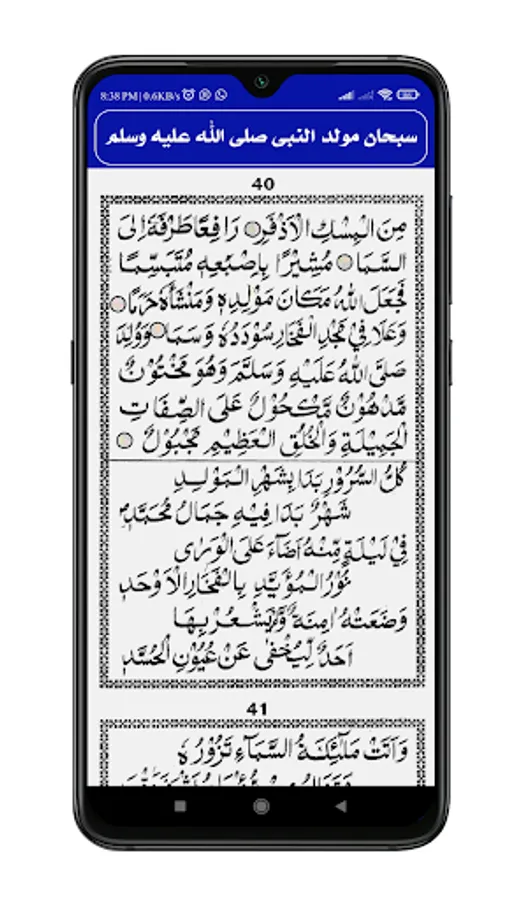 8:38 PM | 0.6KB/s
سبحان مولد النبى صلى الله عليه وسلم
40
مِنَ الْمِسْكِ الْاَذْفَرِ رَافِعًا طَرْفَهٗ اِلَى
السَّمَا مُشِيْرًا بِاِصْبَعِهٖ مُتَبَسِّمًا
فَجَعَلَ اللهُ مَكَانَ مَوْلِدِهٖ وَمَنْشَأَهٗ حَرَمًا
وَعَلَا فِيْ مَجْدِ الْفَخَارِ سُوْدَدُهٗ وَسَمَا وَوُلِدَ
صَلَّى اللهُ عَلَيْهِ وَسَلَّمَ وَهُوَ مَخْتُوْنٌ
مَّدْهُوْنٌ مَّكْحُوْلٌ عَلَى الصِّفَاتِ
الْجَمِيْلَةِ وَالْخُلُقِ الْعَظِيْمِ مَجْبُوْلٌ
كُلُّ السُّرُوْرِ بَدَا بِشَهْرِ الْمَوْلِدِ
شَهْرٌ بَدَا فِيْهِ جَمَالُ مُحَمَّدٍ
فِيْ لَيْلَةٍ مِّنْهُ اَضَآءَ عَلَى الْوَرٰى
نُوْرُ الْمُؤَيَّدِ بِالْفَخَارِ الْاَوْحَدِ
وَضَعَتْهُ اٰمِنَةٌ وَّلَمْ يَشْعُرْ بِهَا
اَحَدٌ لِّيُخْفٰى عَنْ عُيُوْنِ الْحُسَّدِ
41
وَاَتَتْ مَلٰٓئِكَةُ السَّمَآءِ تَزُوْرُهٗ